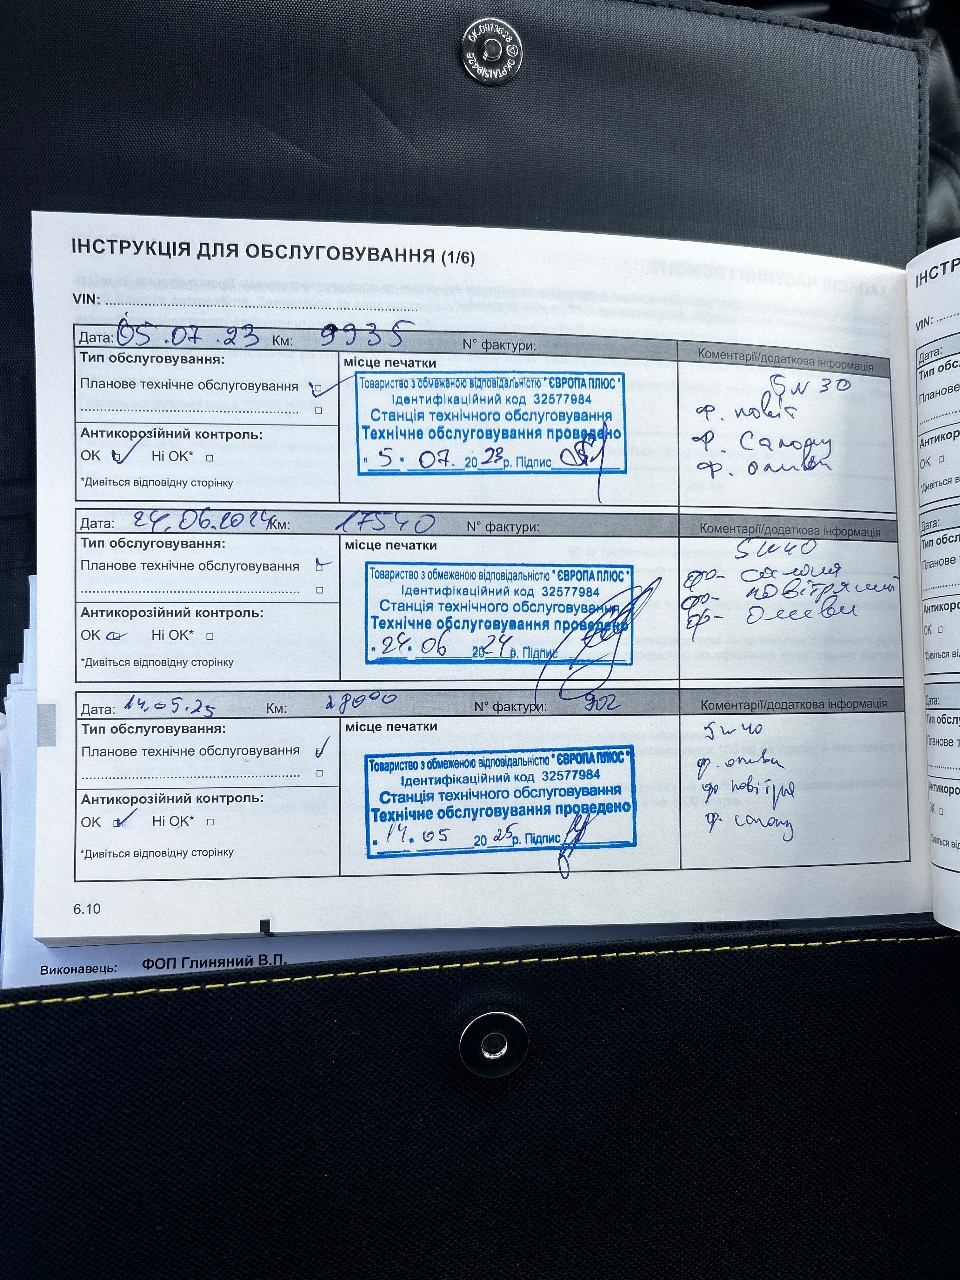 ІНСТРУКЦІЯ ДЛЯ ОБСЛУГОВУВАННЯ (1/6)
VIN:
Дата: 05.07.23 Км: 9935 N° фактури:
Коментарі/додаткова інформація
Тип обслуговування:
Планове технічне обслуговування
Антикорозійний контроль:
OK Ні OK*
*Дивіться відповідну сторінку
місце печатки
Товариство з обмеженою відповідальністю "ЄВРОПА ПЛЮС"
Ідентифікаційний код 32577984
Станція технічного обслуговування
Технічне обслуговування проведено
"5" 07. 2023р. Підпис
5W30
ф. повіт
ф. салону
ф. оливи
Дата: 24.06.2024 Км: 17540 N° фактури:
Коментарі/додаткова інформація
Тип обслуговування:
Планове технічне обслуговування
Антикорозійний контроль:
OK Ні OK*
*Дивіться відповідну сторінку
місце печатки
Товариство з обмеженою відповідальністю "ЄВРОПА ПЛЮС"
Ідентифікаційний код 32577984
Станція технічного обслуговування
Технічне обслуговування проведено
"24" 06 2024р. Підпис
5W40
салоня
повітряний
оливи
Дата: 14.05.25 Км: 28000 N° фактури: 902
Коментарі/додаткова інформація
Тип обслуговування:
Планове технічне обслуговування
Антикорозійний контроль:
OK Ні OK*
*Дивіться відповідну сторінку
місце печатки
Товариство з обмеженою відповідальністю "ЄВРОПА ПЛЮС"
Ідентифікаційний код 32577984
Станція технічного обслуговування
Технічне обслуговування проведено
"14" 05 2025р. Підпис
5w40
ф. оливи
ф. салону
6.10
24 червня 2024 р.
Виконавець: ФОП Глиняний В.П.